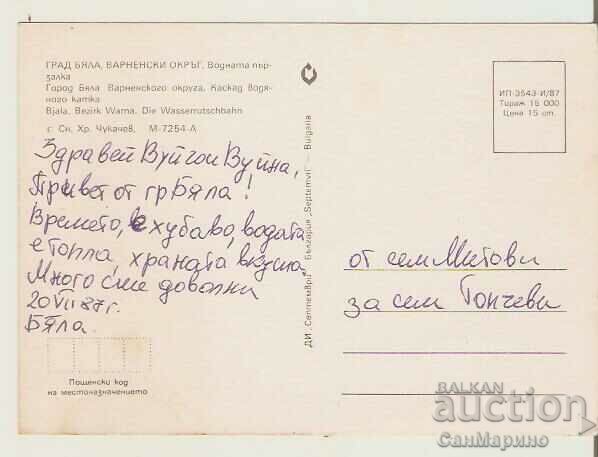 ГРАД БЯЛА, ВАРНЕНСКИ ОКРЪГ. Водната пър-
залка
Город Бяла Варненского округа. Каскад водя-
ного катка
Bjala, Bezirk Warna. Die Wasserrutschbahn
г. Сн. Хр. Чукачев, М-7254-А
Здравей Вуйчо и Вуйна,
Привет от гр Бяла!
Времето, е хубаво, водата
е топла, храната вкусна
Много сме доволни
20 VII 87 г.
Бяла.
Пощенски код
на местоназначението
ДИ „Септември" – България „Septemvri" – Bulgaria
ИП-3543-И/87
Тираж 15 000
Цена 15 ст.
от сем Митови
за сем Тончеви
BALKAN
auction
СанМарино